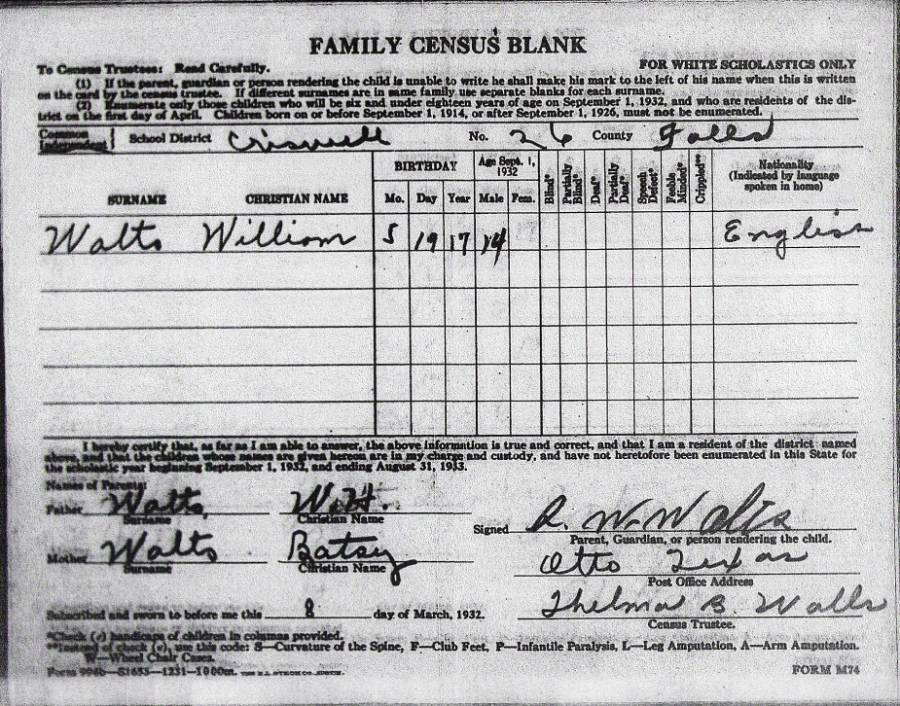 FAMILY CENSUS BLANK
To Census Trustees: Read Carefully. FOR WHITE SCHOLASTICS ONLY
(1) If the parent, guardian or person rendering the child is unable to write he shall make his mark to the left of his name when this is written
on the card by the census trustee. If different surnames are in same family use separate blanks for each surname.
(2) Enumerate only those children who will be six and under eighteen years of age on September 1, 1932, and who are residents of the dis-
trict on the first day of April. Children born on or before September 1, 1914, or after September 1, 1926, must not be enumerated.
Common
Independent } School District Criswell No. 26 County Falls
SURNAME CHRISTIAN NAME BIRTHDAY Mo. Day Year Age Sept. 1, 1932 Male Fem. Blind* Partially Blind* Deaf* Partially Deaf* Speech Defect* Feeble Minded* Crippled** Nationality (Indicated by language spoken in home)
Walts William 5 19 17 14 English
I hereby certify that, as far as I am able to answer, the above information is true and correct, and that I am a resident of the district named
above, and that the children whose names are given hereon are in my charge and custody, and have not heretofore been enumerated in this State for
the scholastic year beginning September 1, 1932, and ending August 31, 1933.
Names of Parents:
Father Walts W.H.
Surname Christian Name
Signed R. W. Walts
Parent, Guardian, or person rendering the child.
Mother Walts Batsy
Surname Christian Name
Otto Texas
Post Office Address
Thelma B. Walls
Census Trustee.
Subscribed and sworn to before me this 8 day of March, 1932.
*Check (✓) handicaps of children in columns provided.
**Instead of check (✓), use this code: S—Curvature of the Spine, F—Club Feet, P—Infantile Paralysis, L—Leg Amputation, A—Arm Amputation.
W—Wheel Chair Cases.
Form 996b—S1655—1231—1000m. FORM M74